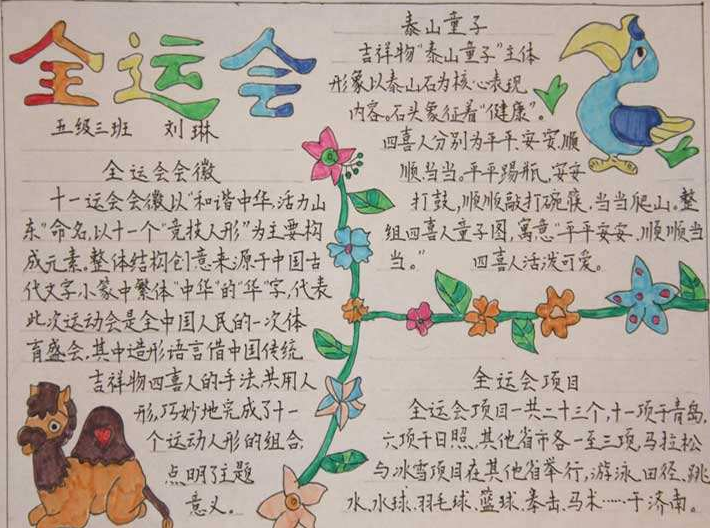 全运会
五级三班 刘琳
全运会会徽
十一运会会徽以“和谐中华,活力山
东”命名,以十一个“竞技人形”为主要构
成元素。整体结构创意来源于中国古
代文字小篆中繁体“中华”的“华”字,代表
此次运动会是全中国人民的一次体
育盛会,其中造形语言借中国传统
吉祥物四喜人的手法,共用人
形,巧妙地完成了十一
个运动人形的组合,
点明了主题
意义。
泰山童子
吉祥物“泰山童子”主体
形象以泰山石为核心表现
内容。石头象征着“健康”。
四喜人分别为平平、安安、顺
顺、当当。平平踢瓶,安安
打鼓,顺顺敲打碗筷,当当爬山,整
组四喜人童子图,寓意“平平安安、顺顺当
当。” 四喜人活泼可爱。
全运会项目
全运会项目一共二十三个,十一项于青岛,
六项于日照,其他省市各一至三项,马拉松
与冰雪项目在其他省举行,游泳、田径、跳
水、水球、羽毛球、篮球、拳击、马术……于济南。